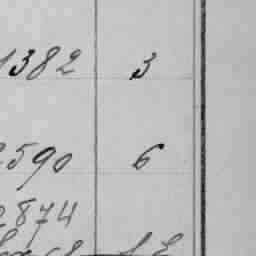 1382 3
2590 6
2874